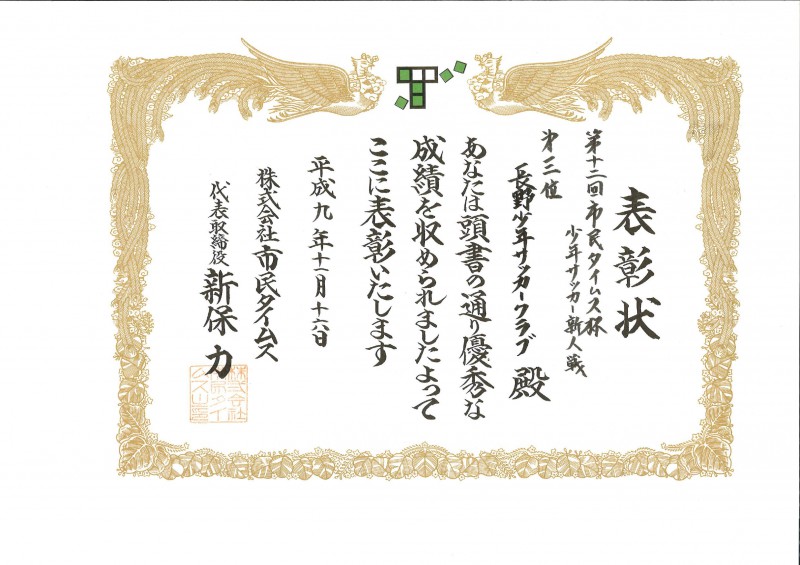 表彰状
第十二回市民タイムス杯
少年サッカー新人戦
第三位
長野少年サッカークラブ 殿
あなたは頭書の通り優秀な
成績を収められましたよって
ここに表彰いたします
平成九年十一月十六日
株式会社市民タイムス
代表取締役 新保力